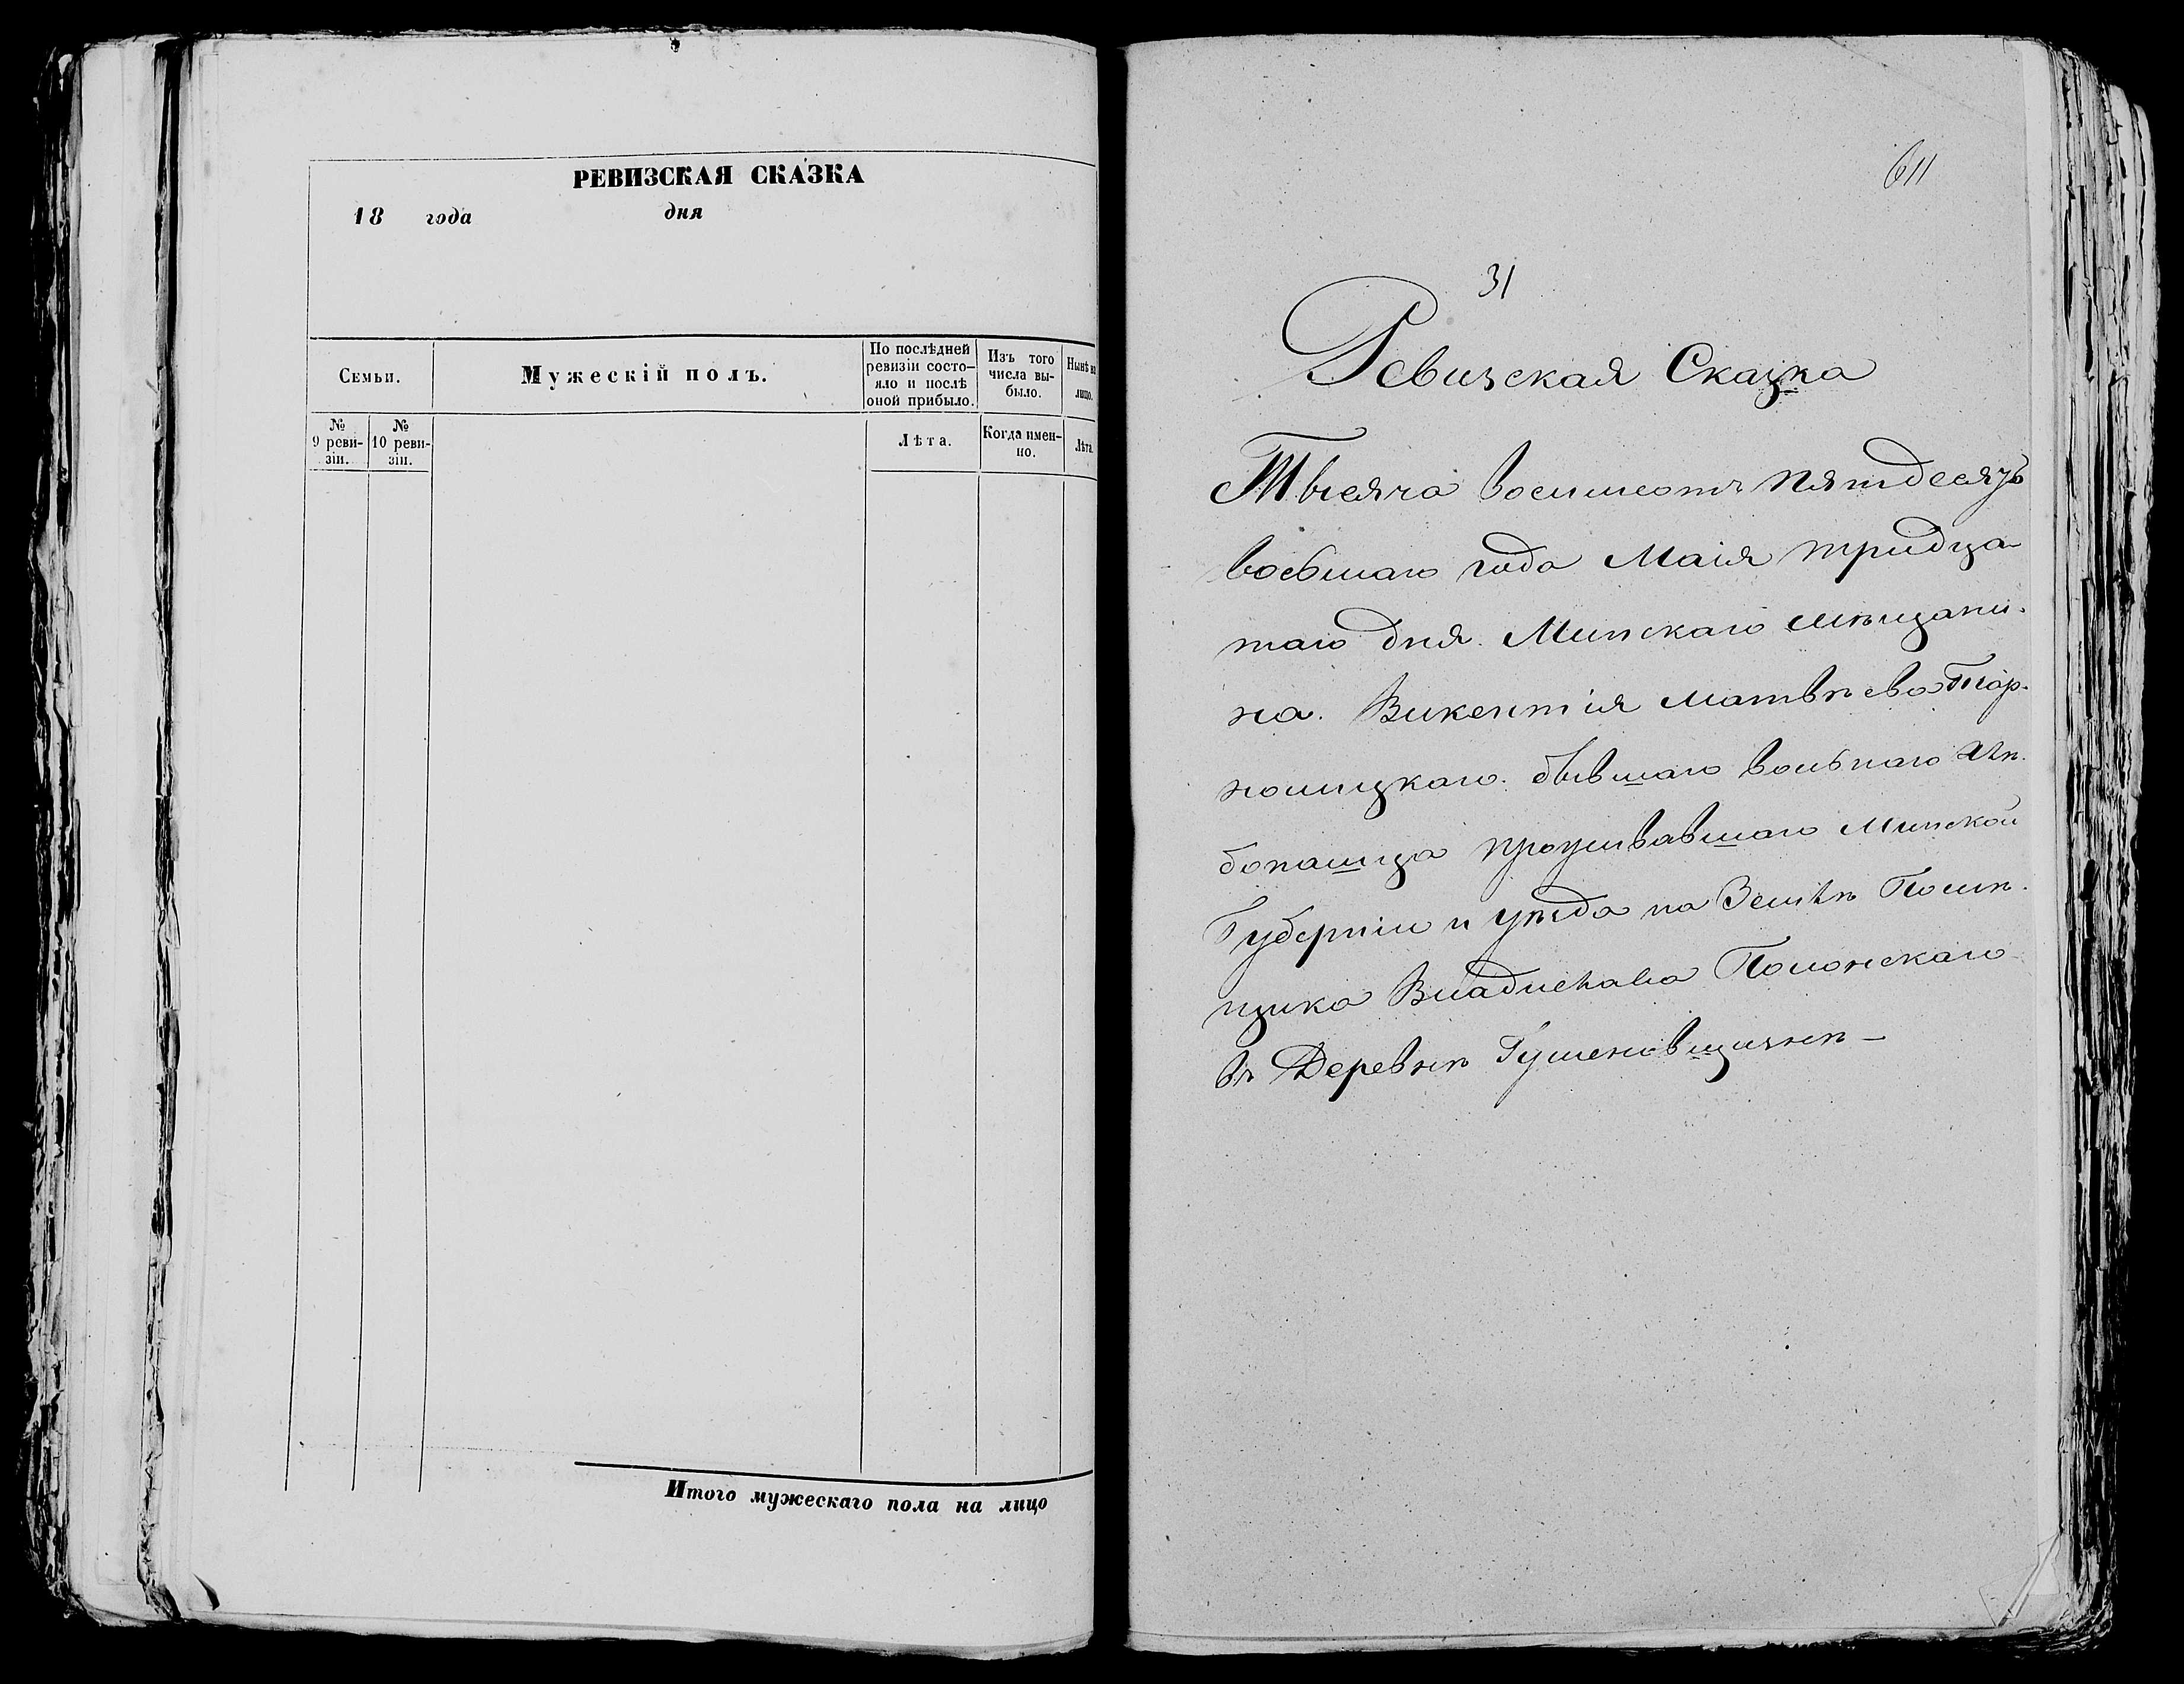 РЕВИЗСКАЯ СКАЗКА
18 года дня
Семьи.
Мужескій полъ.
По послѣдней
ревизіи состо-
яло и послѣ
оной прибыло.
Изъ того
числа вы-
было.
Нынѣ на
лицо.
№
9 реви-
зіи.
№
10 реви-
зіи.
Лѣта.
Когда имен-
но.
Лѣта.
Итого мужескаго пола на лицо
611
31
Ревизская Сказка
Тысяча восимсотъ пятдесятъ
восьмаго года Маія тридца-
таго дня. Минскаго мѣщани-
на. Викентія Матвѣева
бывшаго вольнаго хлѣ-
бопашца проживавшаго Минской
Губерніи и уѣзда на Землѣ Помѣ-
щика Владислава Полонскаго
въ Деревнѣ